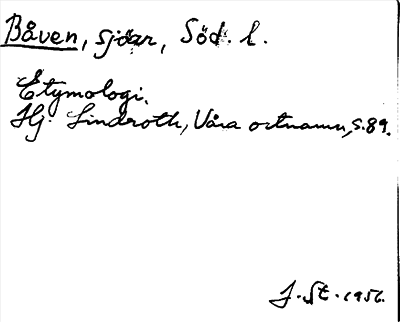 Båven, sjöar, Söd. l.
Etymologi.
Hj. Lindroth, Våra ortnamn, s. 89.
J. St. 1956.